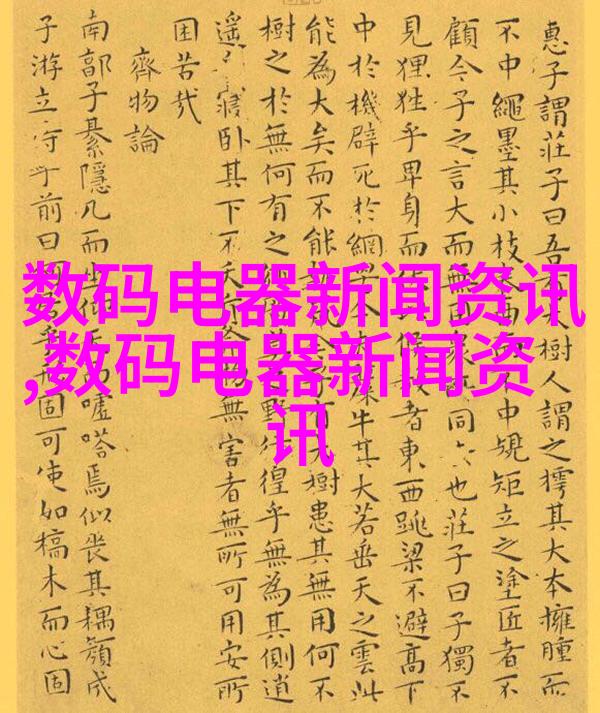 数码电器新闻资讯
,数码电器新闻资
讯
惠子謂莊子曰吾大樹人謂之樗其大本擁腫而
不中繩墨其小枝而不中規矩立之塗匠者不
顧今子之言大而無用同去也莊子曰子獨不
見狸狌乎卑身而候敖者東西跳梁不避高下
中於機辟死於網牛其大若垂天之雲此
能為大矣而不能大樹患其無用何不
樹之於無何有之野彷徨乎無為其側逍
遙寢臥其下不夭物無害者無所可用安所
困苦哉
齊物論
南郭子綦隱几而坐仰天噓嗒焉似喪其耦顏成
子游立侍乎前曰固可使如槁木而心固